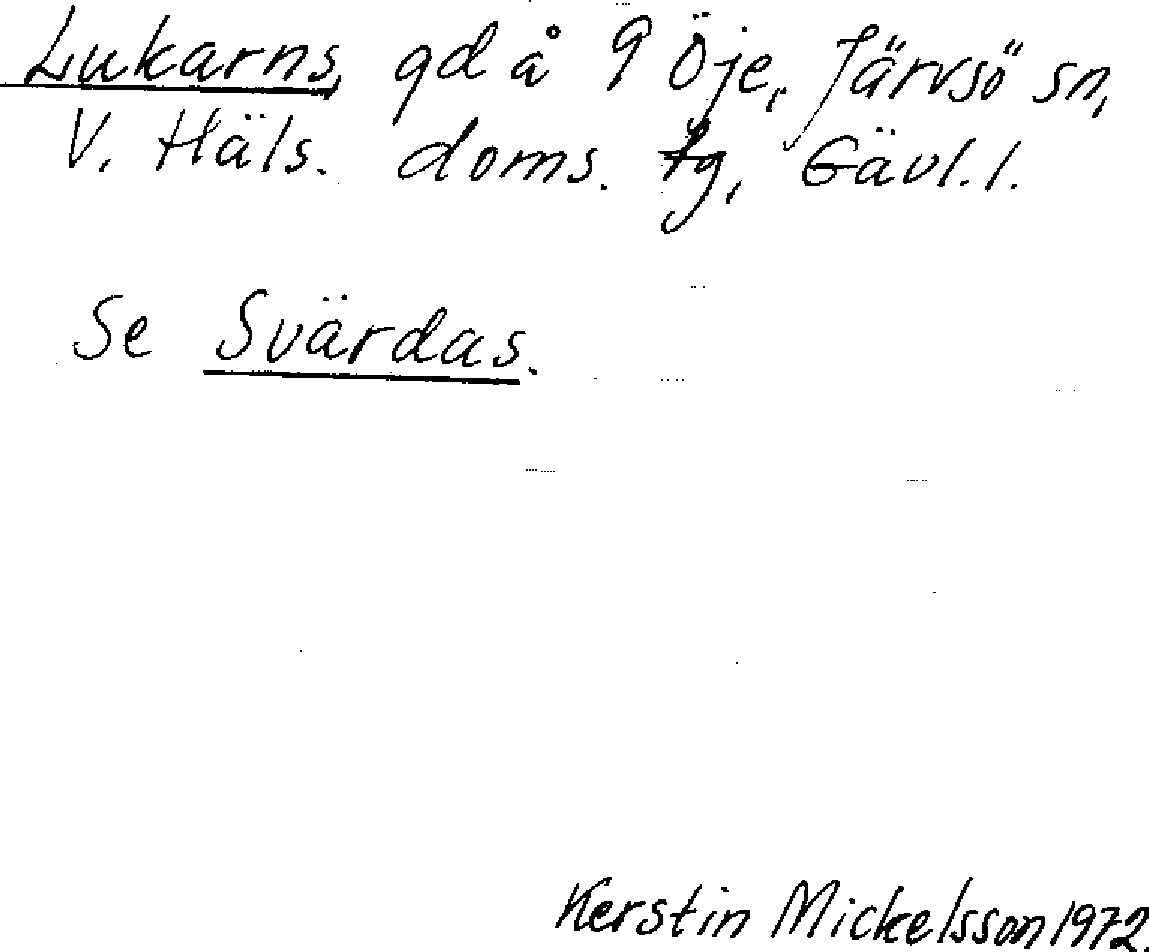 Lukarns, gd å 9 Öje, Järvsö sn,
V. Häls. doms. tg, Gävl. l.
Se Svärdas.
Kerstin Mickelsson 1972.